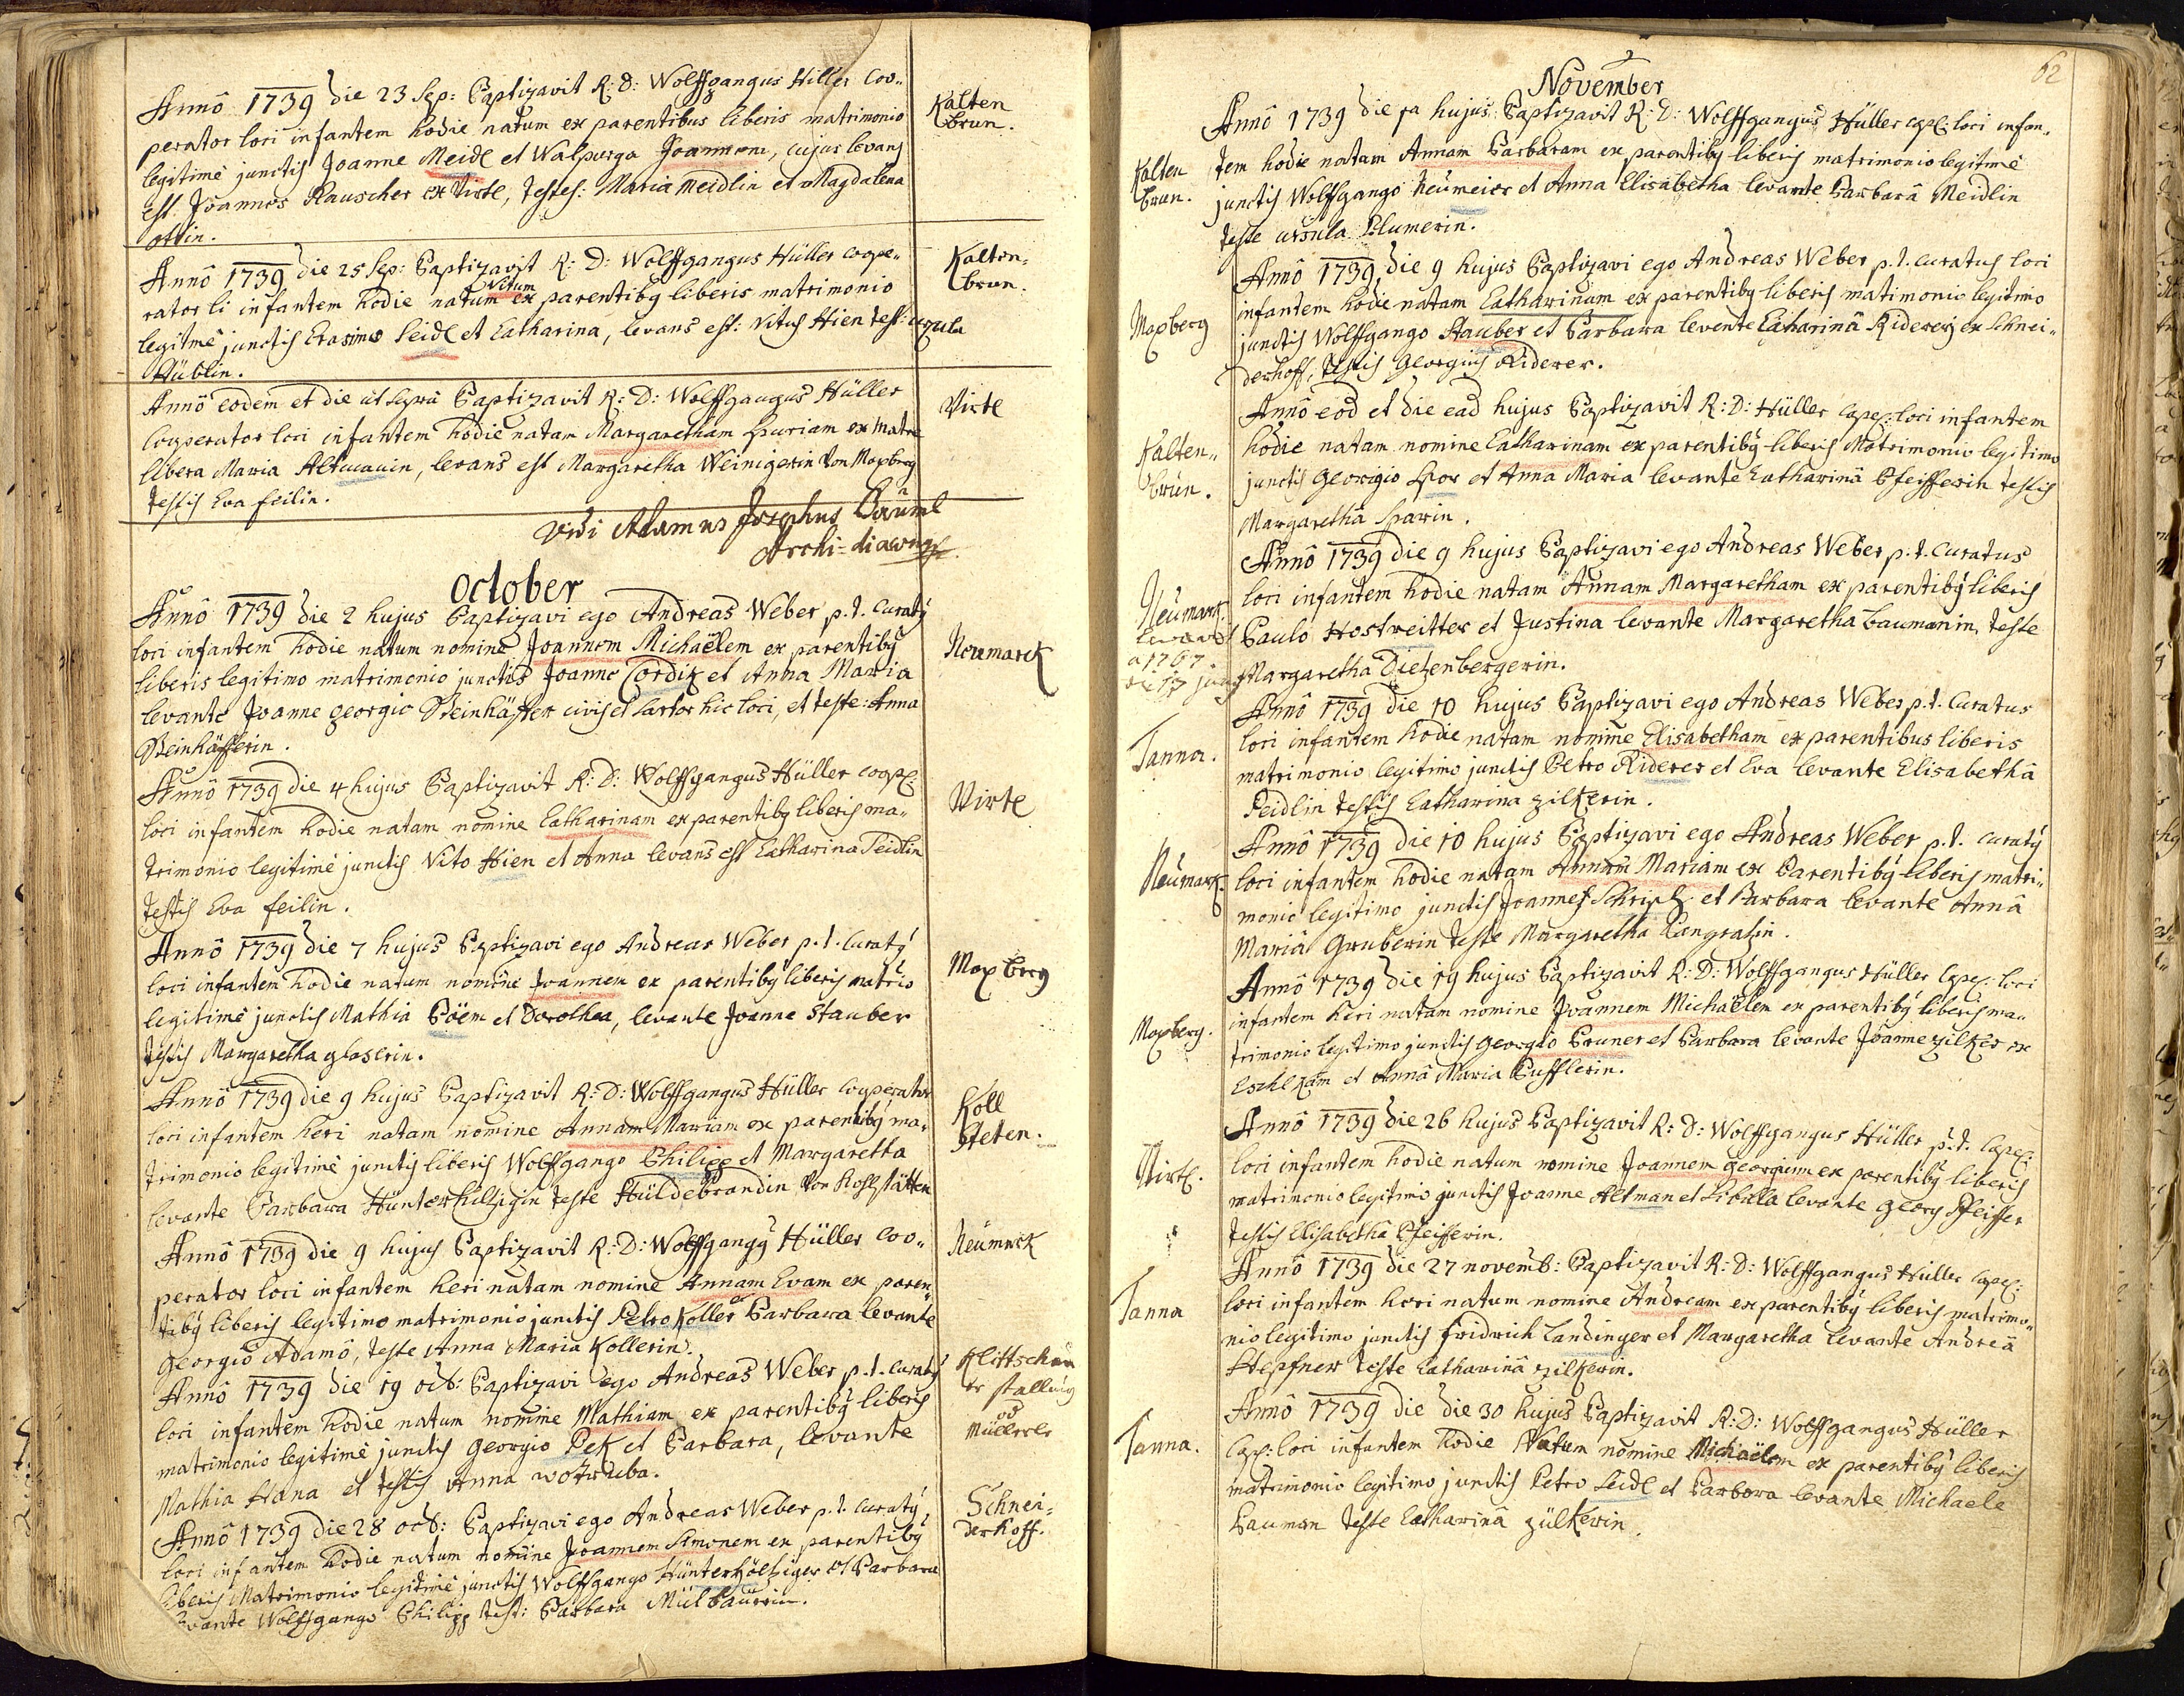 Kalten
brun.
Annô 1739 die 23 Sep: Baptizavit R: D: Wolffgangus Hiller Coo„
perator loci infantem hodie natum ex parentibus liberis matrimonio
legitimè junctis Joanne Meidl et Walpurga Joannem, cujus levans
est Joannes Rauscher ex Virtl, testes: Maria Meidlin et Magdalena
ottin.
Kalten=
brun.
Annô 1739 die 25 Sep: Baptizavit R: D: Wolffgangus Hüller coope„
Vitum
rator li infantem hodie natum ex parentibg liberis matrimonio
legitmè junctis Erasmo Seidl et Catharina, levans est: Vitus Hien test: urzula
Hüblin.
Virtl
Annô eodem et die ut supra Baptizavit R: D: Wolffgangus Hüller
Cooperator loci infantem hodie natam Margaretham spuriam ex matre
libera Maria Altmanin, levans est Margaretha Weinigerin von Maxberg
testis Eva feilin.
Vidi Adamus Josephus Bäuml
Archi=diaconus
October
Neumarck
Annô 1739 die 2 hujus Baptizavi ego Andreas Weber p. t. Curatg
loci infantem hodie natum nomine Joannem Michaëlem ex parentibg
liberis legitimo matrimonio junctis Joanne Cordik et Anna Maria
levante Joanne georgio Beinhäffer civis et sartor hic loci, et teste: Anna
Beinhäfferin.
Virtl
Annô 1739 die 4 hujus Baptizavit R: D: Wolffgangus Hüller coop:
loci infantem hodie natam nomine Catharinam ex parentibg liberis ma„
trimonio legitimè junctis Vito Hien et Anna levans est Catharina Seidlin
testis Eva feilin.
Maxberg
Annô 1739 die 7 hujus Baptizavi ego Andreas Weber p. t. Curatg
loci infantem hodie natum nomine Joannem ex parentibg liberis matrio
legitimè junctis Mathia Böem et Dorothea, levante Joanne Stauber
testis Margaretha glaserin.
Koll
steten.
Annô 1739 die 9 hujus Baptizavit R: D: Wolffgangus Hüller Cooperator
loci infantem heri natam nomine Annam Mariam ex parentibg ma„
trimonio legitimè junctis liberis Wolffgango Philipp et Margaretha
levante Barbara Hünterhilzigin teste Hüldebrandin von Kohlstätten
Neumarck
Annô 1739 die 9 hujus Baptizavit R: D: Wolffgangg Hüller Coo„
perator loci infantem heri natam nomine Annam Evam ex paren„
tibg liberis legitimo matrimonio junctis Petro Koller et Barbara levante
georgio Adamô, teste Anna Maria Kollerin.
Klittschau
er stallung
od
Müllerle
Annô 1739 die 19 octb: Baptizavi ego Andreas Weber p. t. Curatg
loci infantem hodie natum nomine Mathiam ex parentibg liberis
matrimonio legitimè junctis georgio Pek et Barbara, levante
Mathia Hana et testis Anna wotruba.
Schnei=
derhoff.
Annô 1739 die 28 octb: Baptizavi ego Andreas Weber p. t. Curatg
loci infantem hodie natum nomine Joannem Simonem ex parentibg
liberis Matrimonio legitimè junctis Wolffgango Hünterhöltziger et Barbara
levante Wolffgango Philipp test: Barbara Mülbaurin.
62
November
Kalten
brun.
Annô 1739 die 1a hujus Baptizavit R: D: Wolffgangus Hüller capl: loci infan„
tem hodie natam Annam Barbaram ex parentibg liberis matrimonio legitmè
junctis Wolffgango Neumeier et Anna Elisabetha levante Barbarâ Meidlin
teste ursula Blumerin.
Maxberg
Annô 1739 die 9 hujus Baptizavi ego Andreas Weber p. t. Curatus loci
infantem hodie natam Catharinam ex parentibg liberis matimonio legitimo
junctis Wolffgango Stauber et Barbara levente Catharinâ Ridererj ex Schnei„
derhoff, testis Georgius Riderer.
Kalten„
brun.
Annô eod et die ead hujus Baptizavit R: D: Hüller Capel: loci infantem
hodie natam nomine Catharinam ex parentibg liberis Matrimonio legitimo
junctis Georgio Spor et Anna Maria levante Catharinâ Pfeifferin testis
Margarethâ Sparin.
Neumarck
a 1767
Annô 1739 die 9 hujus Baptizavi ego Andreas Weber p. t. Curatus
loci infantem hodie natam Annam Margaretham ex parentibg liberis
Paulo Hostreitter et Justina levante Margaretha Baumanin, teste
Margaretha Dietzenbergerin.
Tanna.
Annô 1739 die 10 hujus Baptizavi ego Andreas Weber p. t. Curatus
loci infantem hodie natam nomine Elisabetham ex parentibus liberis
matrimonio legitimo junctis Petro Riderer et Eva levante Elisabethâ
Seidlin testis Catharina zilkerin.
Neumark.
Annô 1739 die 10 hujus Baptizavi ego Andreas Weber p. t. Curatg
loci infantem hodie natam Annam Mariam ex Parentibg liberis matri„
monio legitimo junctis Joannes Schripl et Barbara levante Annâ
Mariâ Gruberin teste Margaretha Pangratzin.
Maxberg.
Annô 1739 die 19 hujus Baptizavit R: D: Wolffgangus Hüller Capel: loci
infantem heri natam nomine Joannem Michaëlem ex parentibg liberis ma„
trimonio legitimo junctis georgio Bruner et Barbara levante Joanne zilker ex
Eschlkam et Annâ Maria Pufflerin.
Virtl.
Annô 1739 die 26 hujus Baptizavit R: D: Wolffgangus Hüller p. t. Capel:
loci infantem hodie natum nomine Joannem georgium ex parentibg liberis
matrimonio legitimo junctis Joanne Altman et Sibilla levante georg Pfeiffer
testis Elisabethâ Pfeifferin.
Tanna
Annô 1739 die 27 novemb: Baptizavit R: D: Wolffgangus Hüller Capel:
loci infantem heri natum nomine Andream ex parentibg liberis matrimo„
nio legitimo junctis fridrich Landinger et Margaretha levante Andreâ
Hepfner teste Catharinâ zilkerin.
Tanna.
Annô 1739 die die 30 hujus Baptizavit R: D: Wolffgangus Hüller
Cap: loci infantem hodie Natum nomine Michaëlem ex parentibg liberis
matrimonio legitimo junctis Petro Seidl et Barbara levante Michaele
Bauman teste Catharinâ zülkerin.